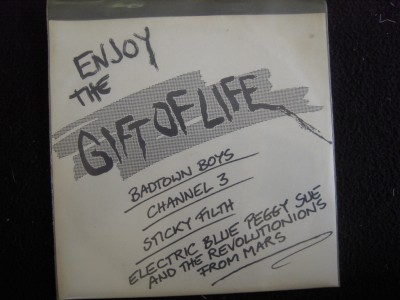 ENJOY
THE
GIFT OF LIFE
BADTOWN BOYS
CHANNEL 3
STICKY FILTH
ELECTRIC BLUE PEGGY SUE
AND THE REVOLUTIONIONS
FROM MARS